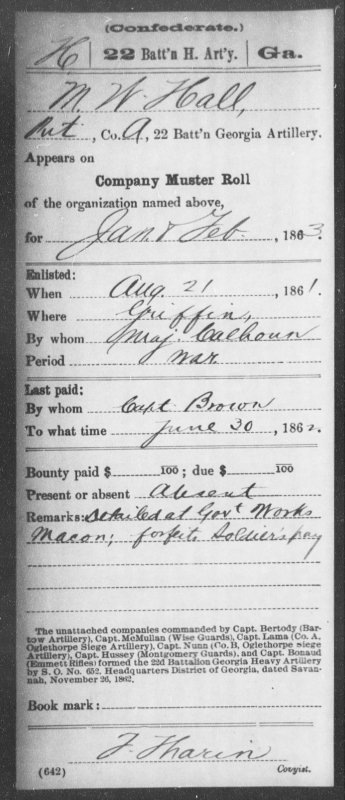 (Confederate.)
H | 22 Batt'n H. Art'y. | Ga.
M. W. Hall,
Pvt, Co. A, 22 Batt'n Georgia Artillery.
Appears on
Company Muster Roll
of the organization named above,
for Jan & Feb, 1863.
Enlisted:
When Aug. 21, 1861.
Where Griffin,
By whom Maj. Calhoun
Period War
Last paid:
By whom Capt Brown
To what time June 30, 1862.
Bounty paid $ 100; due $ 100
Present or absent Absent
Remarks: Detailed at Govt Works
Macon; forfeits Soldier's pay
The unattached companies commanded by Capt. Bertody (Bar-
tow Artillery), Capt. McMullan (Wise Guards), Capt. Lama (Co. A,
Oglethorpe Siege Artillery), Capt. Nunn (Co. B, Oglethorpe Siege
Artillery), Capt. Hussey (Montgomery Guards), and Capt. Bonaud
(Emmett Rifles) formed the 22d Battalion Georgia Heavy Artillery
by S. O. No. 652, Headquarters District of Georgia, dated Savan-
nah, November 26, 1862.
Book mark:
F. Tharin
(642) Copyist.